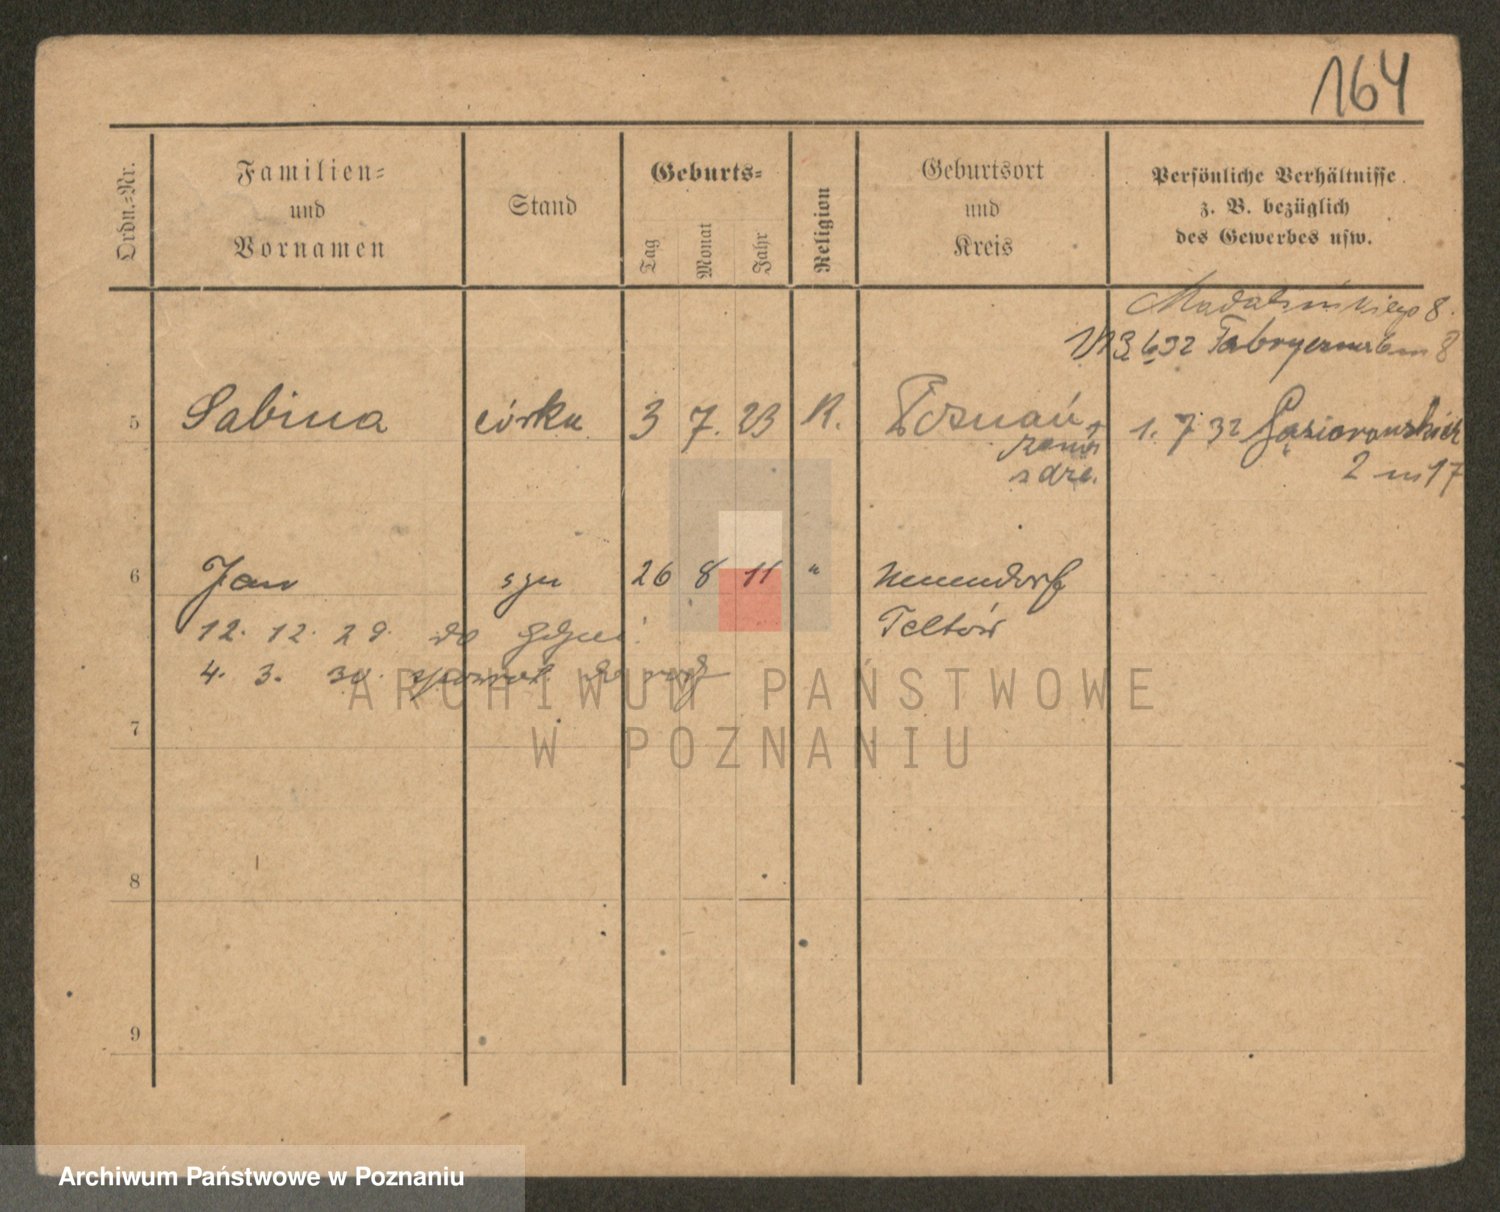 164
Ordn.-Nr.
Familien-
und
Vornamen
Stand
Geburts-
Tag
Monat
Jahr
Religion
Geburtsort
und
Kreis
Persönliche Verhältnisse
z. B. bezüglich
des Gewerbes usw.
Madalińskiego 8.
6 32 8
5 Sabina córka 3 7. 23 R. Poznań 1. 7 32 Gąsiorowskich
2 m 17
6 Jan syn 26 8 11 " Neuendorf
12. 12. 29. do Teltów
4. 3. 30. do
7
8
9
ARCHIWUM PAŃSTWOWE
W POZNANIU
Archiwum Państwowe w Poznaniu